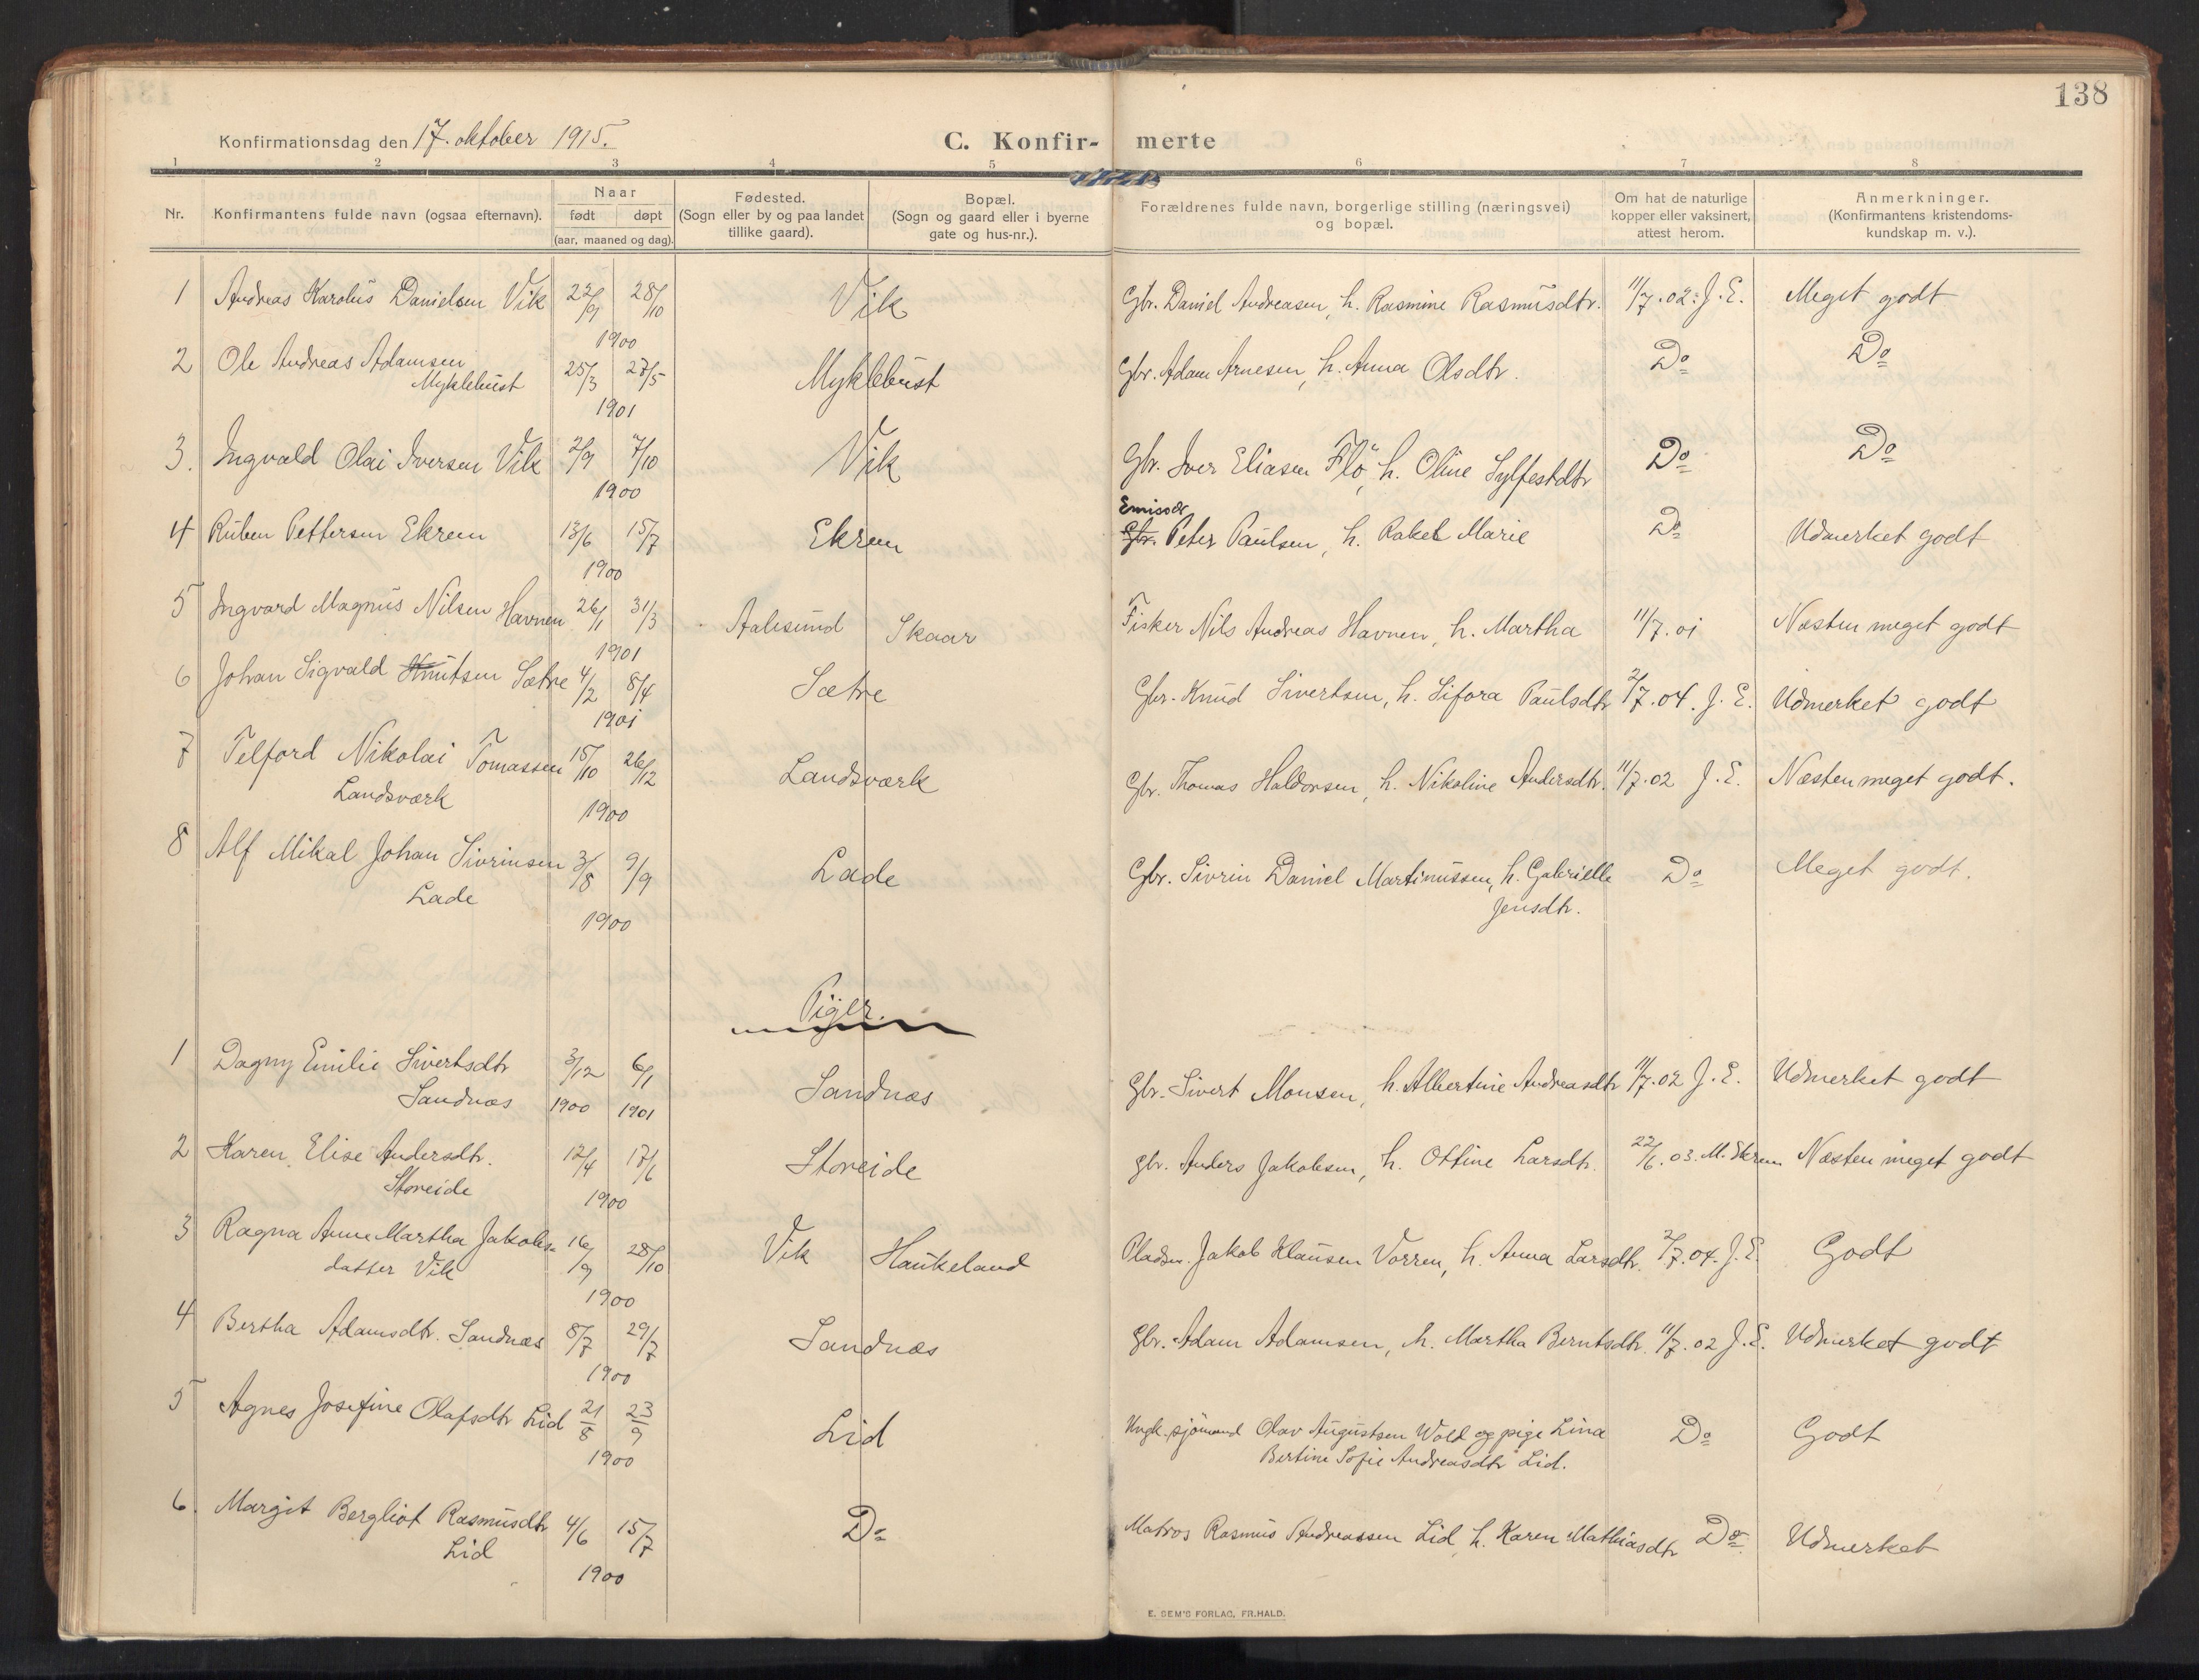 138
Konfirmationsdag den 17. oktober 1915.
C. Konfir- merte
1 2 3 4 5 6 7 8
Nr.
Konfirmantens fulde navn (ogsaa efternavn).
Naar
født døpt
(aar, maaned og dag).
Fødested.
(Sogn eller by og paa landet
tillike gaard).
Bopæl.
(Sogn og gaard eller i byerne
gate og hus-nr.).
Forældrenes fulde navn, borgerlige stilling (næringsvei)
og bopæl.
Om hat de naturlige
kopper eller vaksinert,
attest herom.
Anmerkninger.
(Konfirmantens kristendoms-
kundskap m. v.).
1 Andreas Karolus Danielsen Vik 22/9 28/10 Vik Gbr. Daniel Andreasen, h. Rasmine Rasmusdtr. 11/7.02. J. E. Meget godt
1900
2 Ole Andreas Adamsen 25/3 27/5 Myklebust Gbr. Adam Arnesen, h. Anna Olsdtr. Do Do
Myklebust
1901
3. Ingvald Olai Iversen Vik 2/9 7/10 Vik Gbr. Iver Eliasen Flö, h. Oline Sylfestdtr Do Do
1900
Emissær
4 Ruben Pettersen Ekrem 13/6 15/7 Ekrem Gbr. Peter Paulsen, h. Rakel Marie Do Udmerket godt
1900
5 Ingvard Magnus Nilsen Havnen 26/1 31/3 Aalesund Skaar Fisker Nils Andreas Havnen, h. Martha 11/7.01 Næsten meget godt
1901
6 Johan Sigvald Knutsen Sætre 4/2 8/4 Sætre Gbr. Knud Sivertsen, h. Sifora Paulsdtr 2/7.04. J. E. Udmerket godt
1901
7 Telford Nikolai Tomassen 15/10 26/12 Landsværk Gbr. Thomas Haldorsen, h. Nikoline Andersdtr. 11/7.02 J. E. Næsten meget godt.
Landsværk
1900
8 Alf Mikal Johan Sivrinsen 3/8 9/9 Lade Gbr. Sivrin Daniel Martinussen, h. Gabrielle Do Meget godt.
Lade Jensdtr.
1900
Piger.
1 Dagny Emilie Sivertsdtr 3/12 6/1 Sandnæs Gbr. Sivert Monsen, h. Albertine Andreasdtr 11/7.02 J. E. Udmerket godt
Sandnæs 1900 1901
2 Karen Elise Andersdtr. 12/4 17/6 Storeide Gbr. Anders Jakobsen, h. Ottine Larsdtr. 22/6.03. M. Ekrem Næsten meget godt
Storeide
1900
3 Ragna Anne Martha Jakobs= 16/9 28/10 Vik Haukeland Pladsm. Jakob Klausen Vorren, h. Anna Larsdtr. 2/7.04. J. E. Godt
datter Vik
1900
4 Bertha Adamsdtr. Sandnæs 8/7 29/7 Sandnæs Gbr. Adam Adamsen, h. Martha Berntsdtr. 11/7.02 J. E. Udmerket godt
1900
5 Agnes Josefine Olafsdtr Lid 21/8 23/9 Lid Ungk. sjömand Olav Augustsen Wold og pige Lina Do Godt
Bertine Sofie Andreasdtr Lid.
1900
6. Margit Bergliot Rasmusdtr 4/6 15/7 Do Matros Rasmus Andreassen Lid, h. Karen Mathiasdtr Do Udmerket
Lid
1900
E. SEM'S FORLAG, FR.HALD.